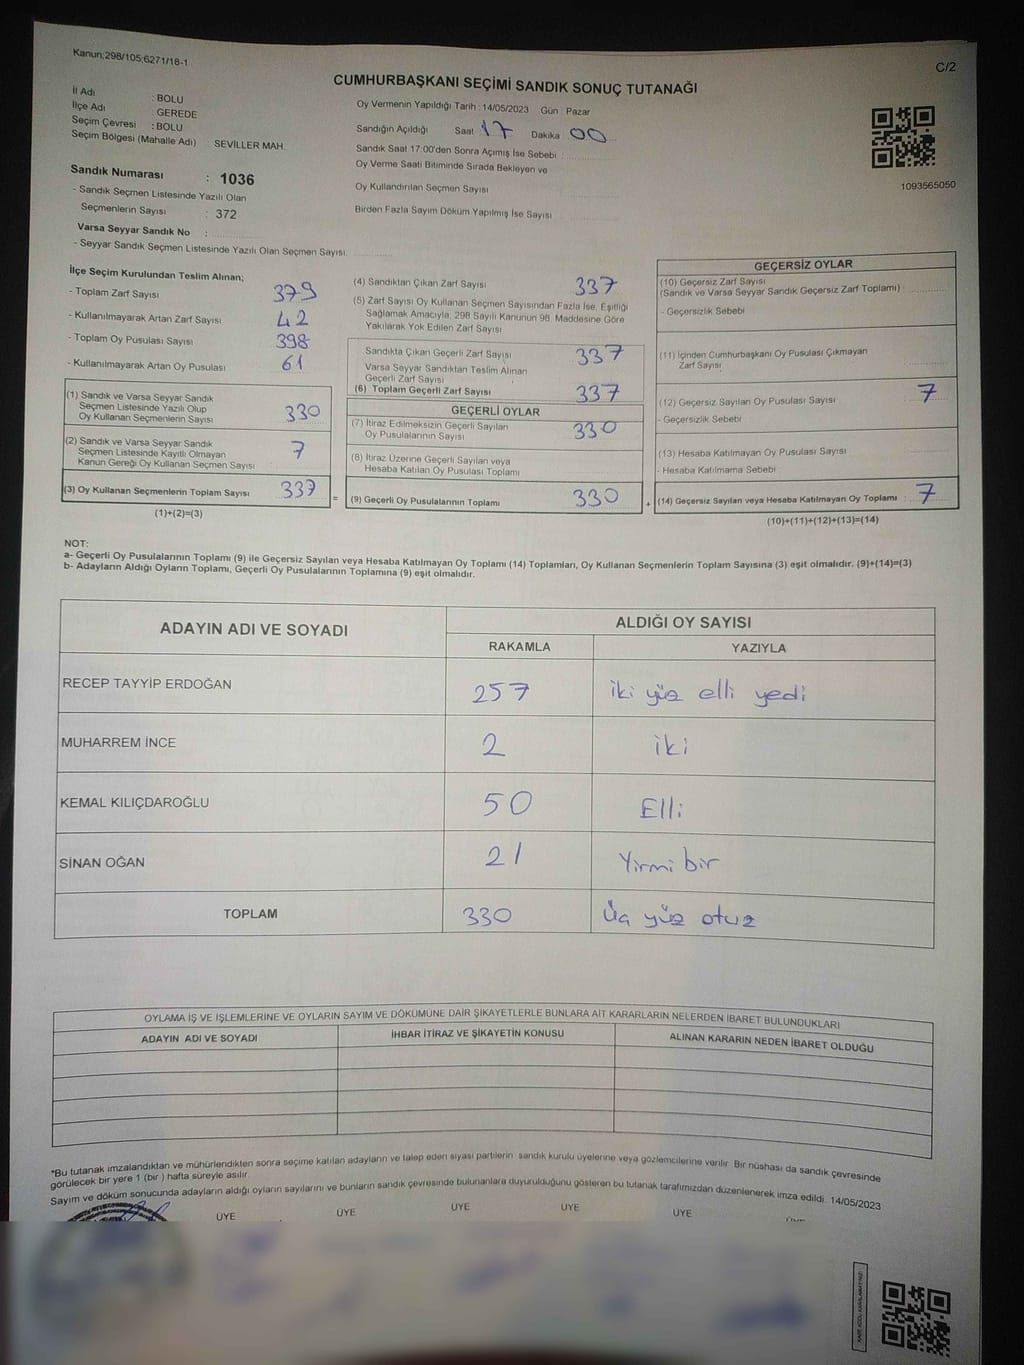 Kanun;298/105;6271/18-1
C/2
CUMHURBAŞKANI SEÇİMİ SANDIK SONUÇ TUTANAĞI
İl Adı : BOLU
İlçe Adı : GEREDE
Seçim Çevresi : BOLU
Seçim Bölgesi (Mahalle Adı) SEVİLLER MAH.
Oy Vermenin Yapıldığı Tarih : 14/05/2023 Gün : Pazar
Sandığın Açıldığı Saat 17 Dakika 00
Sandık Saat 17:00'den Sonra Açımış İse Sebebi :
Oy Verme Saati Bitiminde Sırada Bekleyen ve
Oy Kullandırılan Seçmen Sayısı
Birden Fazla Sayım Döküm Yapılmış İse Sayısı
1093565050
Sandık Numarası : 1036
- Sandık Seçmen Listesinde Yazılı Olan
Seçmenlerin Sayısı : 372
Varsa Seyyar Sandık No :
- Seyyar Sandık Seçmen Listesinde Yazılı Olan Seçmen Sayısı:
İlçe Seçim Kurulundan Teslim Alınan;
- Toplam Zarf Sayısı 379
- Kullanılmayarak Artan Zarf Sayısı 42
- Toplam Oy Pusulası Sayısı 398
- Kullanılmayarak Artan Oy Pusulası 61
(1) Sandık ve Varsa Seyyar Sandık
Seçmen Listesinde Yazılı Olup
Oy Kullanan Seçmenlerin Sayısı 330
(2) Sandık ve Varsa Seyyar Sandık
Seçmen Listesinde Kayıtlı Olmayan
Kanun Gereği Oy Kullanan Seçmen Sayısı 7
(3) Oy Kullanan Seçmenlerin Toplam Sayısı 337
(1)+(2)=(3)
(4) Sandıktan Çıkan Zarf Sayısı 337
(5) Zarf Sayısı Oy Kullanan Seçmen Sayısından Fazla İse, Eşitliği
Sağlamak Amacıyla, 298 Sayılı Kanunun 98. Maddesine Göre
Yakılarak Yok Edilen Zarf Sayısı
Sandıkta Çıkan Geçerli Zarf Sayısı 337
Varsa Seyyar Sandıktan Teslim Alınan
Geçerli Zarf Sayısı
(6) Toplam Geçerli Zarf Sayısı 337
GEÇERLİ OYLAR
(7) İtiraz Edilmeksizin Geçerli Sayılan
Oy Pusulalarının Sayısı 330
(8) İtiraz Üzerine Geçerli Sayılan veya
Hesaba Katılan Oy Pusulası Toplamı
= (9) Geçerli Oy Pusulalarının Toplamı 330 +
GEÇERSİZ OYLAR
(10) Geçersiz Zarf Sayısı
(Sandık ve Varsa Seyyar Sandık Geçersiz Zarf Toplamı) :
- Geçersizlik Sebebi
(11) İçinden Cumhurbaşkanı Oy Pusulası Çıkmayan
Zarf Sayısı
(12) Geçersiz Sayılan Oy Pusulası Sayısı 7
- Geçersizlik Sebebi
(13) Hesaba Katılmayan Oy Pusulası Sayısı
- Hesaba Katılmama Sebebi
(14) Geçersiz Sayılan veya Hesaba Katılmayan Oy Toplamı : 7
(10)+(11)+(12)+(13)=(14)
NOT:
a- Geçerli Oy Pusulalarının Toplamı (9) ile Geçersiz Sayılan veya Hesaba Katılmayan Oy Toplamı (14) Toplamları, Oy Kullanan Seçmenlerin Toplam Sayısına (3) eşit olmalıdır. (9)+(14)=(3)
b- Adayların Aldığı Oyların Toplamı, Geçerli Oy Pusulalarının Toplamına (9) eşit olmalıdır.
ADAYIN ADI VE SOYADI
ALDIĞI OY SAYISI
RAKAMLA YAZIYLA
RECEP TAYYİP ERDOĞAN 257 iki yüz elli yedi
MUHARREM İNCE 2 iki
KEMAL KILIÇDAROĞLU 50 Elli
SİNAN OĞAN 21 Yirmi bir
TOPLAM 330 Üç yüz otuz
OYLAMA İŞ VE İŞLEMLERİNE VE OYLARIN SAYIM VE DÖKÜMÜNE DAİR ŞİKAYETLERLE BUNLARA AİT KARARLARIN NELERDEN İBARET BULUNDUKLARI
ADAYIN ADI VE SOYADI İHBAR İTİRAZ VE ŞİKAYETİN KONUSU ALINAN KARARIN NEDEN İBARET OLDUĞU
*Bu tutanak imzalandıktan ve mühürlendikten sonra seçime katılan adayların ve talep eden siyasi partilerin sandık kurulu üyelerine veya gözlemcilerine verilir. Bir nüshası da sandık çevresinde
görülecek bir yere 1 (bir ) hafta süreyle asılır.
Sayım ve döküm sonucunda adayların aldığı oyların sayılarını ve bunların sandık çevresinde bulunanlara duyurulduğunu gösteren bu tutanak tarafımızdan düzenlenerek imza edildi. 14/05/2023
ÜYE ÜYE ÜYE ÜYE ÜYE